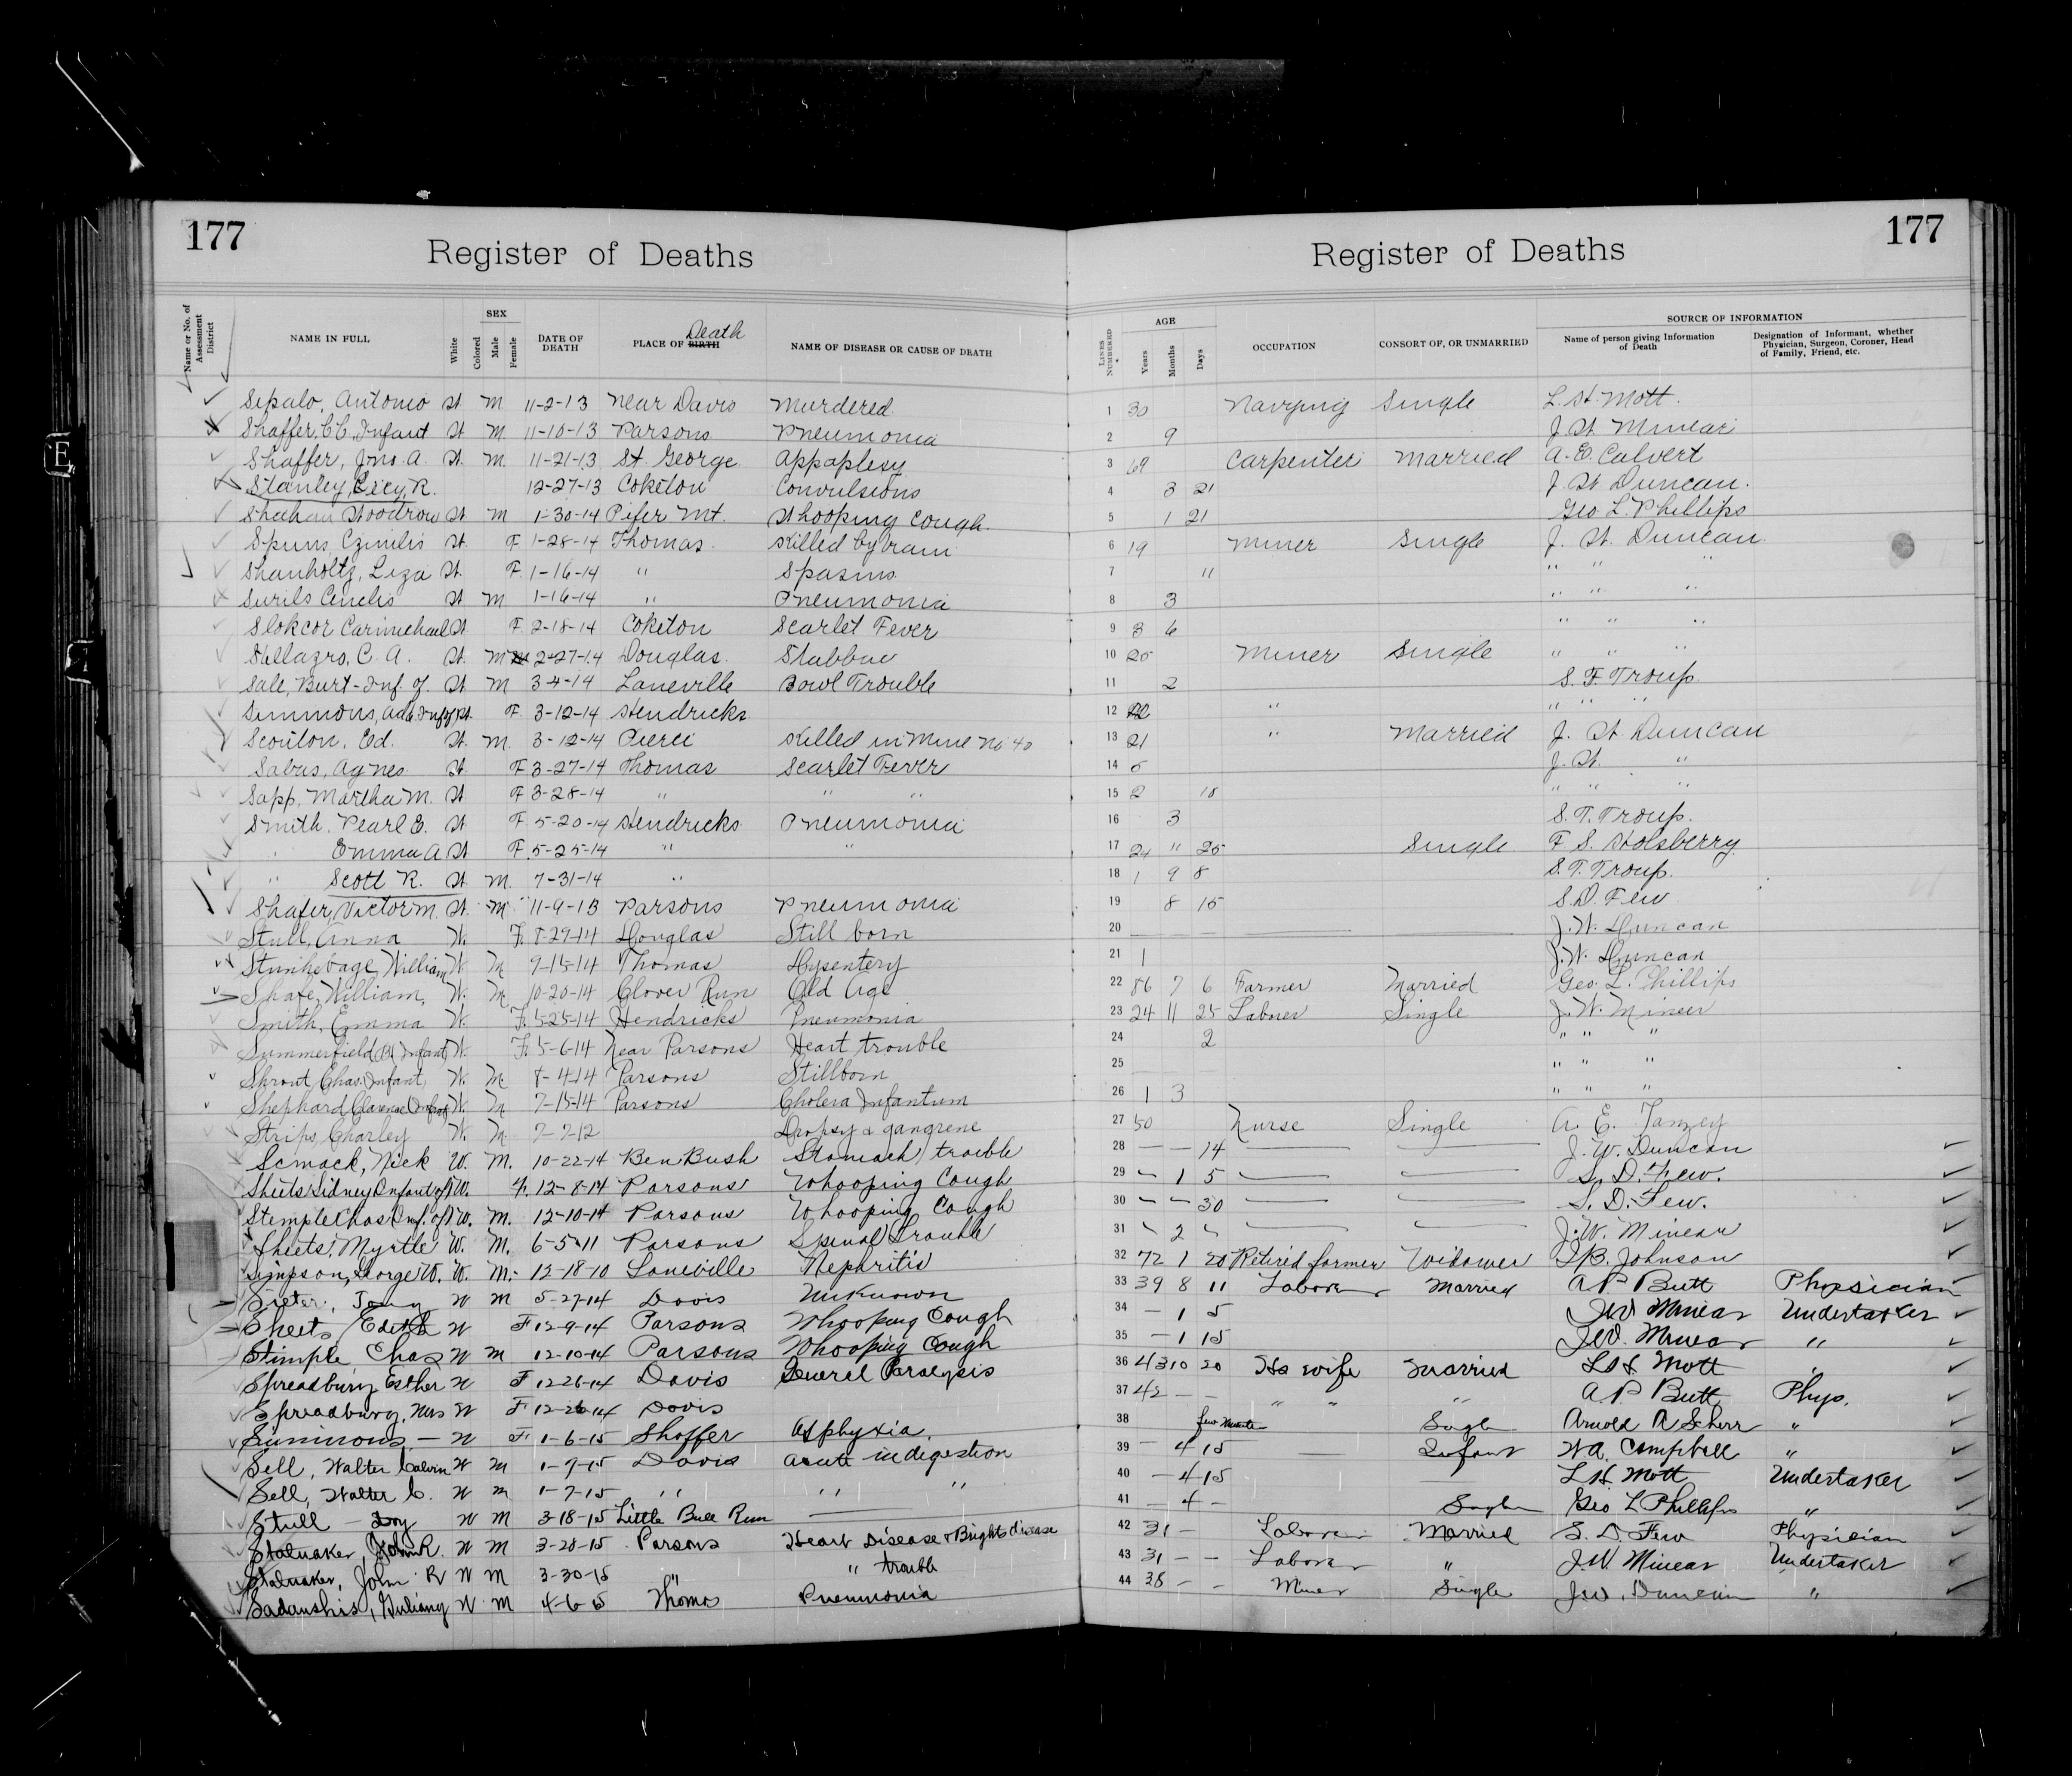 177
Register of Deaths
177
Register of Deaths
Name or No. of Assessment District
NAME IN FULL
White
Colored
SEX
Male
Female
DATE OF DEATH
PLACE OF BIRTH Death
NAME OF DISEASE OR CAUSE OF DEATH
LINES NUMBERED
AGE
Years
Months
Days
OCCUPATION
CONSORT OF, OR UNMARRIED
SOURCE OF INFORMATION
Name of person giving Information of Death
Designation of Informant, whether Physician, Surgeon, Coroner, Head of Family, Friend, etc.
Sepalo, Antonio W M 11-2-13 Near Davis Murdered 1 30 Single L. H. Mott.
Shaffer, C.C. Infant W M. 11-10-13 Parsons Pneumonia 2 9 J. W. Minear
Shaffer, Jno. A. W. M. 11-21-13 St. George Appaplesy 3 69 Carpenter Married A. E. Calvert
Stanley, R. 12-27-13 Coketon Convulsions 4 3 21 J. W. Duncan.
Shahan Woodrow W M 1-30-14 Pifer Mt. Whooping Cough 5 1 21 Geo. L. Phillips
Spuns, W. F 1-28-14 Thomas. Killed by tram 6 19 Miner Single J. W. Duncan
Shanholtz, Liza W. F. 1-16-14 " Spasms 7 11 " " "
Surils W M 1-16-14 " Pneumonia 8 3 " " "
Slokcor Carimchael W. F. 2-18-14 Coketon Scarlet Fever 9 3 6 " " "
C. A. W. M 2-27-14 Douglas. 10 25 Miner Single " " "
Sale, Burt-Inf. of. W M 3-4-14 Laneville Bowl Trouble 11 2 S. T. Troup.
Simmons, Infof W. F. 3-12-14 Hendricks 12 " " " "
Scouton, Ed. W. M. 3-12-14 Pierce Killed in Mine No 40 13 21 " Married J. W. Duncan
Sabus, Agnes W. F 3-27-14 Thomas Scarlet Fever 14 5 J. W. "
Sapp, Martha M. W F 3-28-14 " " " 15 2 18 " " "
Smith, Pearl E. W F. 5-20-14 Hendricks Pneumonia 16 3 S. T. Troup.
" Emma A W F. 5-25-14 " " 17 24 11 25 Single F. S. Holsberry
" Scott R. W M. 7-31-14 " 18 1 9 8 S. T. Troup.
Shafer, Victor M. W. M 11-9-13 Parsons Pneumonia 19 8 15 S. D. Few
Stull, Anna W. F. 8-29-14 Douglas Still born 20 J. W. Duncan
William W. M 9-15-14 Thomas Dysentery 21 1 J. W. Duncan
William, W. M 10-20-14 Clover Run Old Age 22 86 7 6 Farmer Married Geo. L. Phillips
Smith, Emma W. F. 5-25-14 Hendricks Pneumonia 23 24 11 25 Laborer Single J. W. Minear
Summerfield Infant W. F. 5-6-14 Near Parsons Heart trouble 24 2 " " "
Sprout Chas. Infant, W. M 8-4-14 Parsons Stillborn 25 " " "
Shephard Clarence Infof W. M 7-15-14 Parsons Cholera Infantum 26 1 3 " " "
Strips, Charley W. M 7-7-12 Dropsy & gangrene 27 50 Nurse Single A. E.
Scmack, Nick W. M. 10-22-14 Ben Bush Stomach trouble 28 14 J. W. Duncan
Sheets Sidney Infant of W. F. 12-8-14 Parsons Whooping Cough 29 1 5 S. D. Few.
Stemple Chas Inf. of W. M. 12-10-14 Parsons Whooping Cough 30 30 S. D. Few.
Sheets, Myrtle W. M. 6-5-11 Parsons Spinal Trouble 31 2 J. W. Minear
Simpson, George W. W. M. 12-18-10 Laneville Nephritis 32 72 1 20 Retired farmer Widower Johnson
Tony W M 5-27-14 Davis Unknown 33 39 8 11 Laborer Married A P Butt Physician
Sheets, Edith W F 12-9-14 Parsons Whooping Cough 34 1 5 JW Minear Undertaker
Stimple, Chas W M 12-10-14 Parsons Whooping Cough 35 1 15 JW. Minear "
Spreadbury Esther W F 12-26-14 Davis General Paralysis 36 43 10 20 Hs wife Married L H Mott "
Spreadbury, Mrs W F 12-26-14 Davis 37 42 " " " A P Butt Phys.
Simmons, — W F 1-6-15 Shaffer Asphyxia. 38 few minutes Single Arnold A Scherr "
Sell, Walter Calvin W M 1-7-15 Davis acute indigestion 39 4 15 Infant W A. Campbell "
Sell, Walter C. W M 1-7-15 " " " 40 4 15 L H. Mott Undertaker
Stull — W M 3-18-15 Little Bull Run 41 4 Single Geo L Phillips "
Stalnaker, John R. W M 3-28-15 Parsons Heart Disease & Brights disease 42 31 Laborer Married S. D. Few Physician
Stalnaker, John R W M 3-30-15 " " trouble 43 31 Laborer " J. W Minear Undertaker
Sadanshis, W M 4-6-15 Thomas Pneumonia 44 38 Miner Single J. W. Duncan "